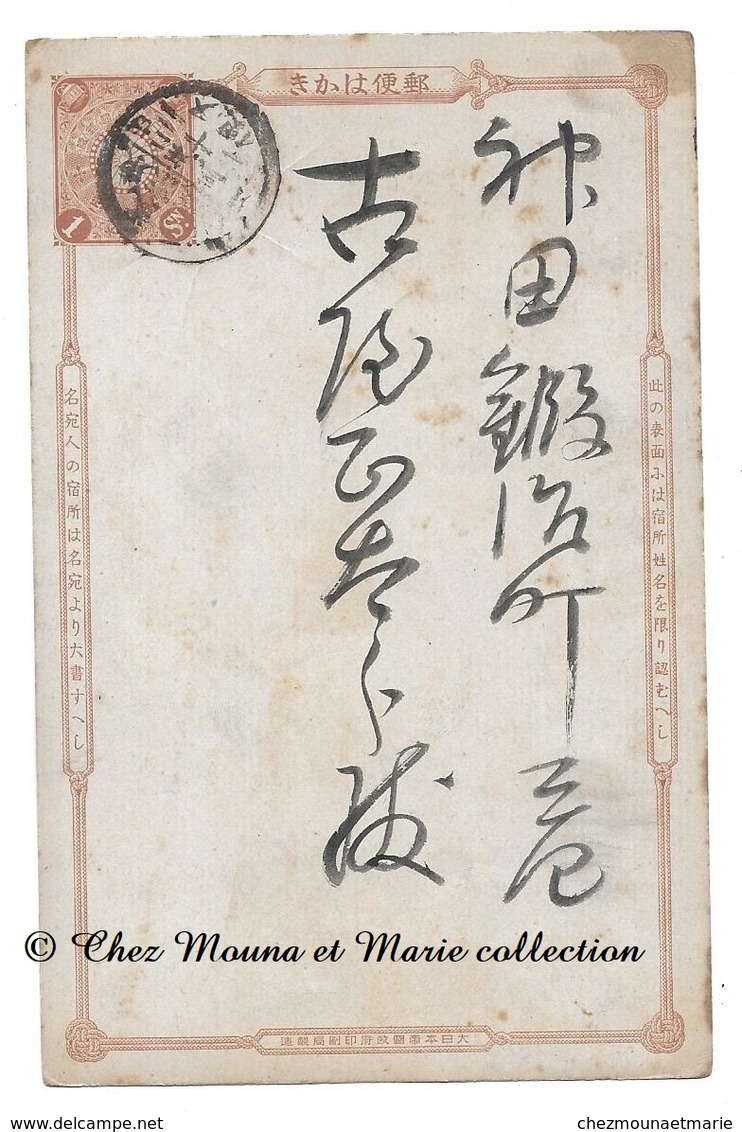 郵便はかき
神田鍛冶町三色
古陵正太郎殿
此の表面には宿所姓名を限り認むへし
名宛人の宿所は名宛より大書すへし
1
SN.
大日本帝國政府印刷局製造
© Chez Mouna et Marie collection
chezmounaetmarie